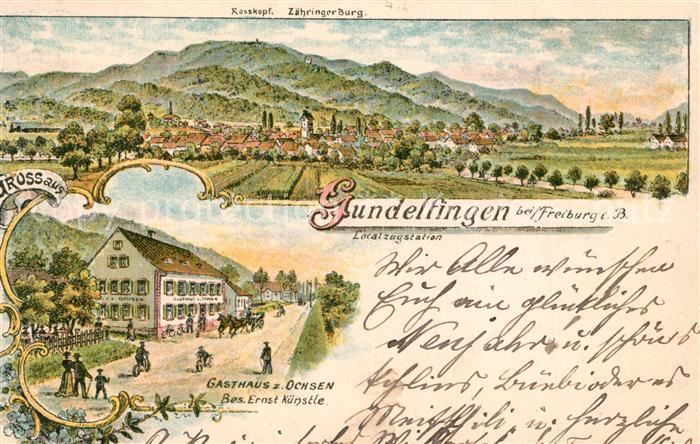 Rosskopf. Zähringer Burg.
GRUSS aus
Gundelfingen bei/Freiburg i. B.
Localzugstation
GASTHAUS z. OCHSEN
GASTHAUS z. OCHSEN
Bes. Ernst Künstle.
Wir Alle wünschen
Euch ein glückliches
Neujahr u. schöns
u. herzliche